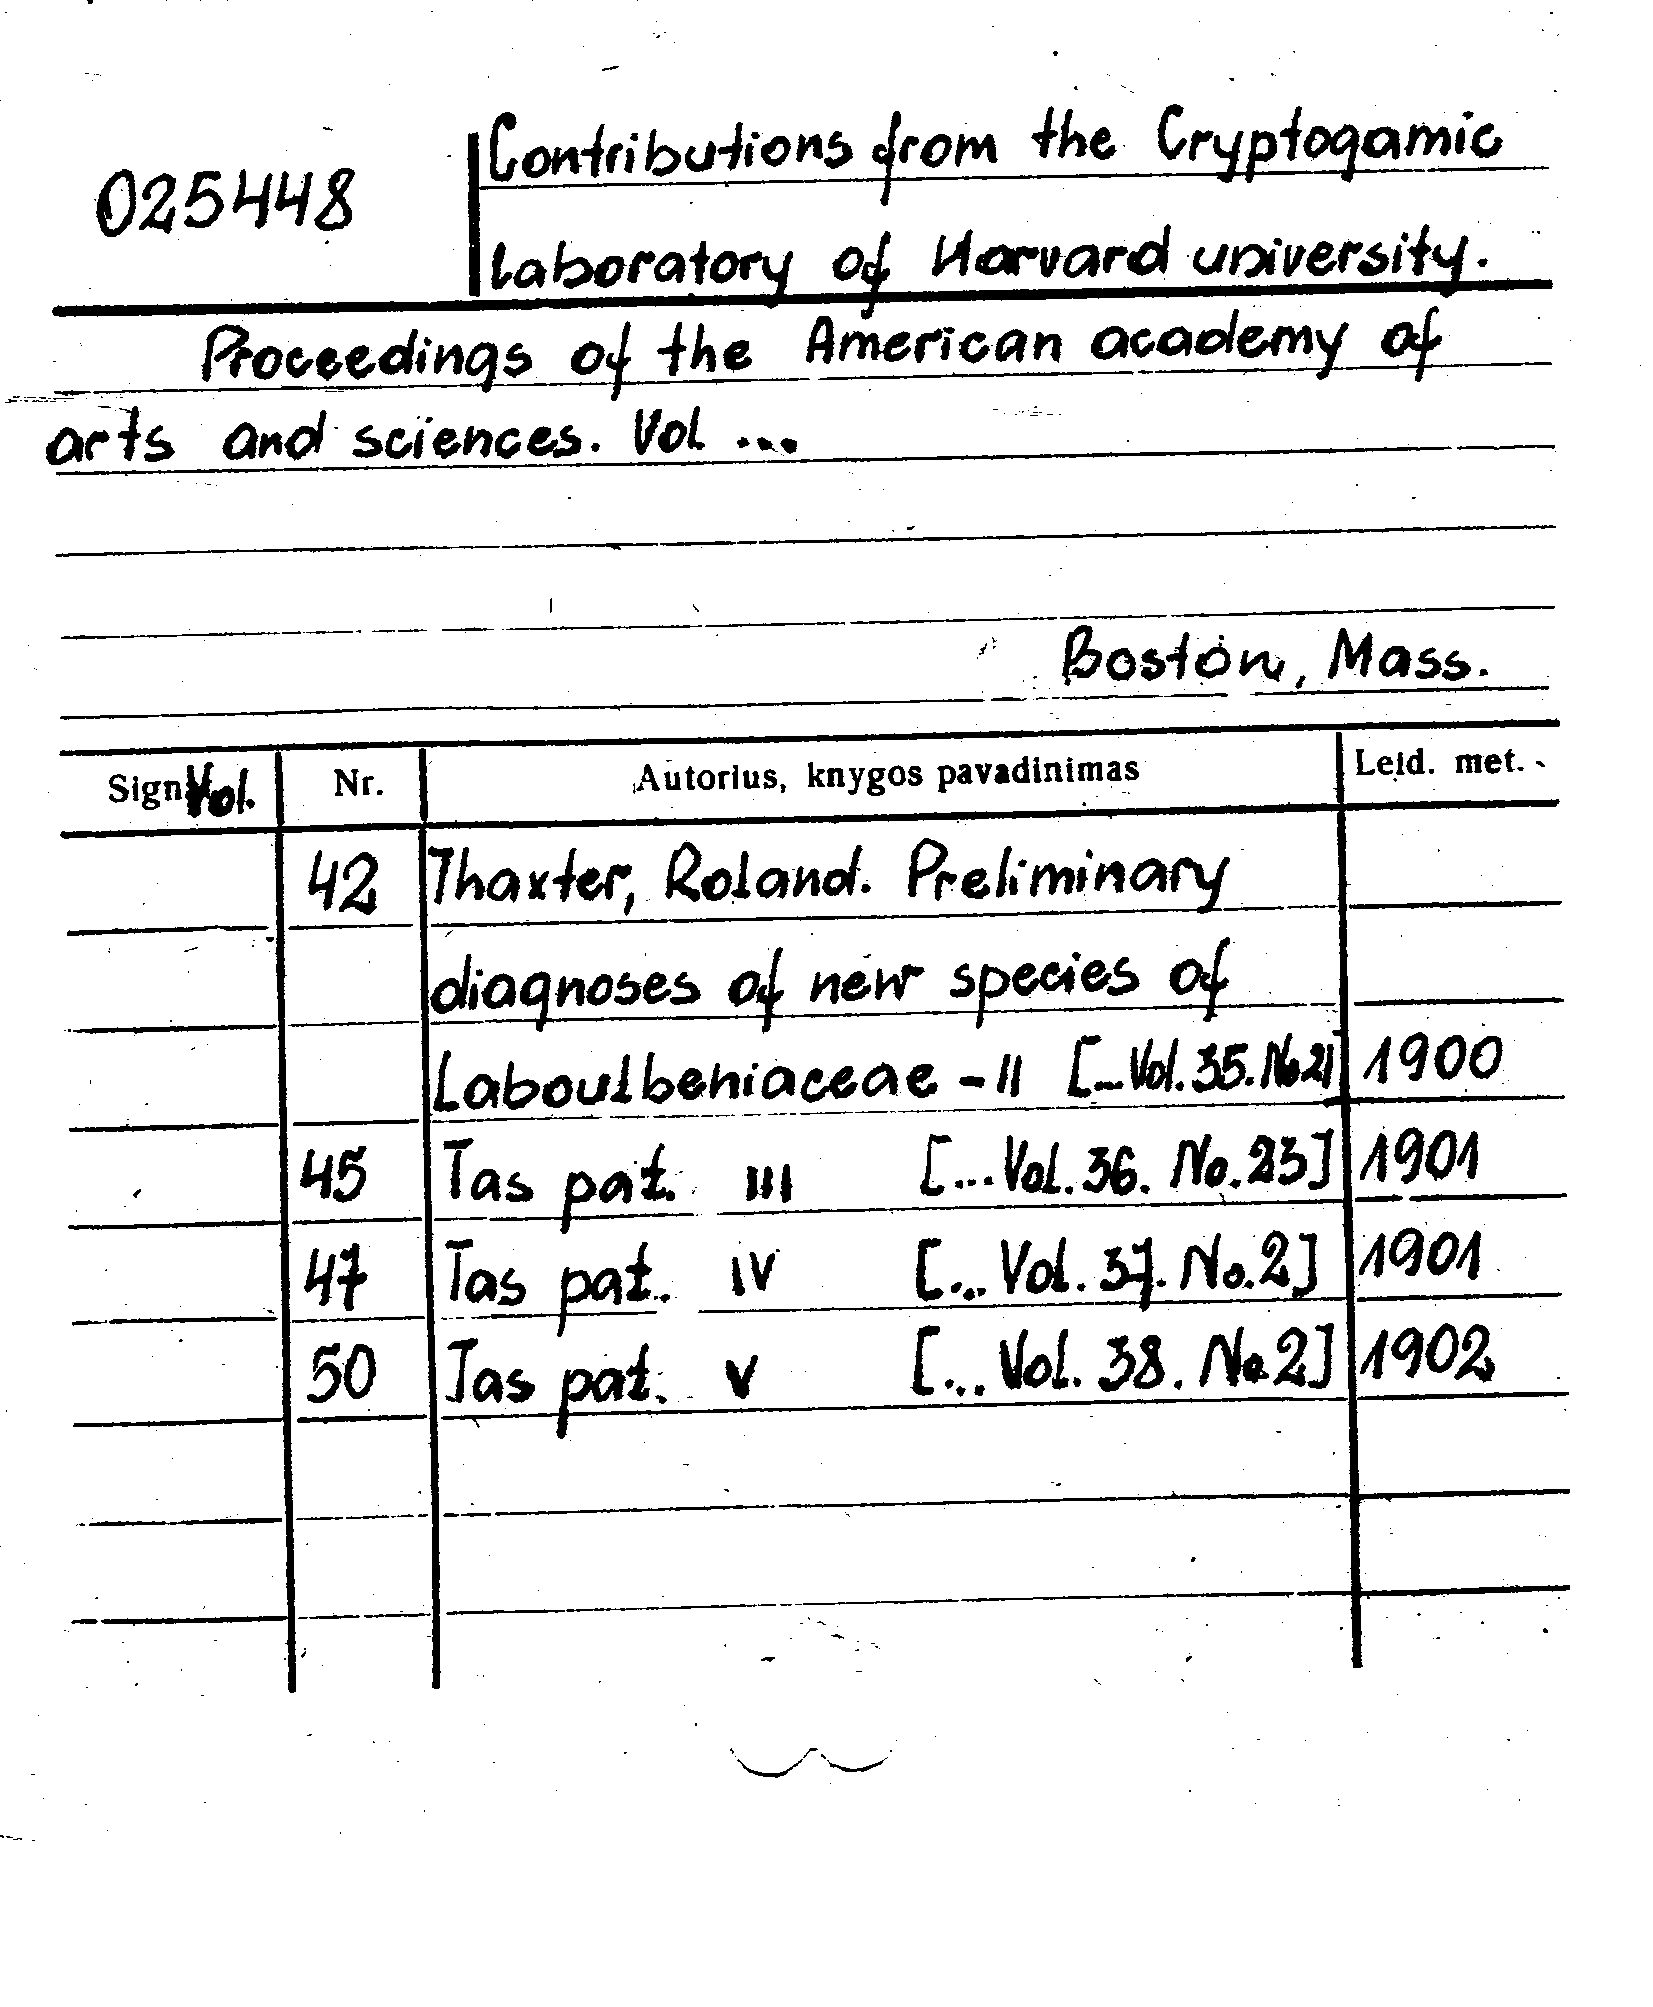 Contributions from the Cryptogamic
025448
Laboratory of Harvard university.
Proceedings of the American academy of
arts and sciences. Vol ...
Boston, Mass.
Sign. Vol. Nr. Autorius, knygos pavadinimas Leid. met.
42 Thaxter, Roland. Preliminary
diagnoses of new species of
Laboulbeniaceae - II [...Vol. 35. No 21] 1900
45 Tas pat. III [...Vol. 36. No. 23] 1901
47 Tas pat. IV [... Vol. 37. No. 2] 1901
50 Tas pat. V [... Vol. 38. No. 2] 1902